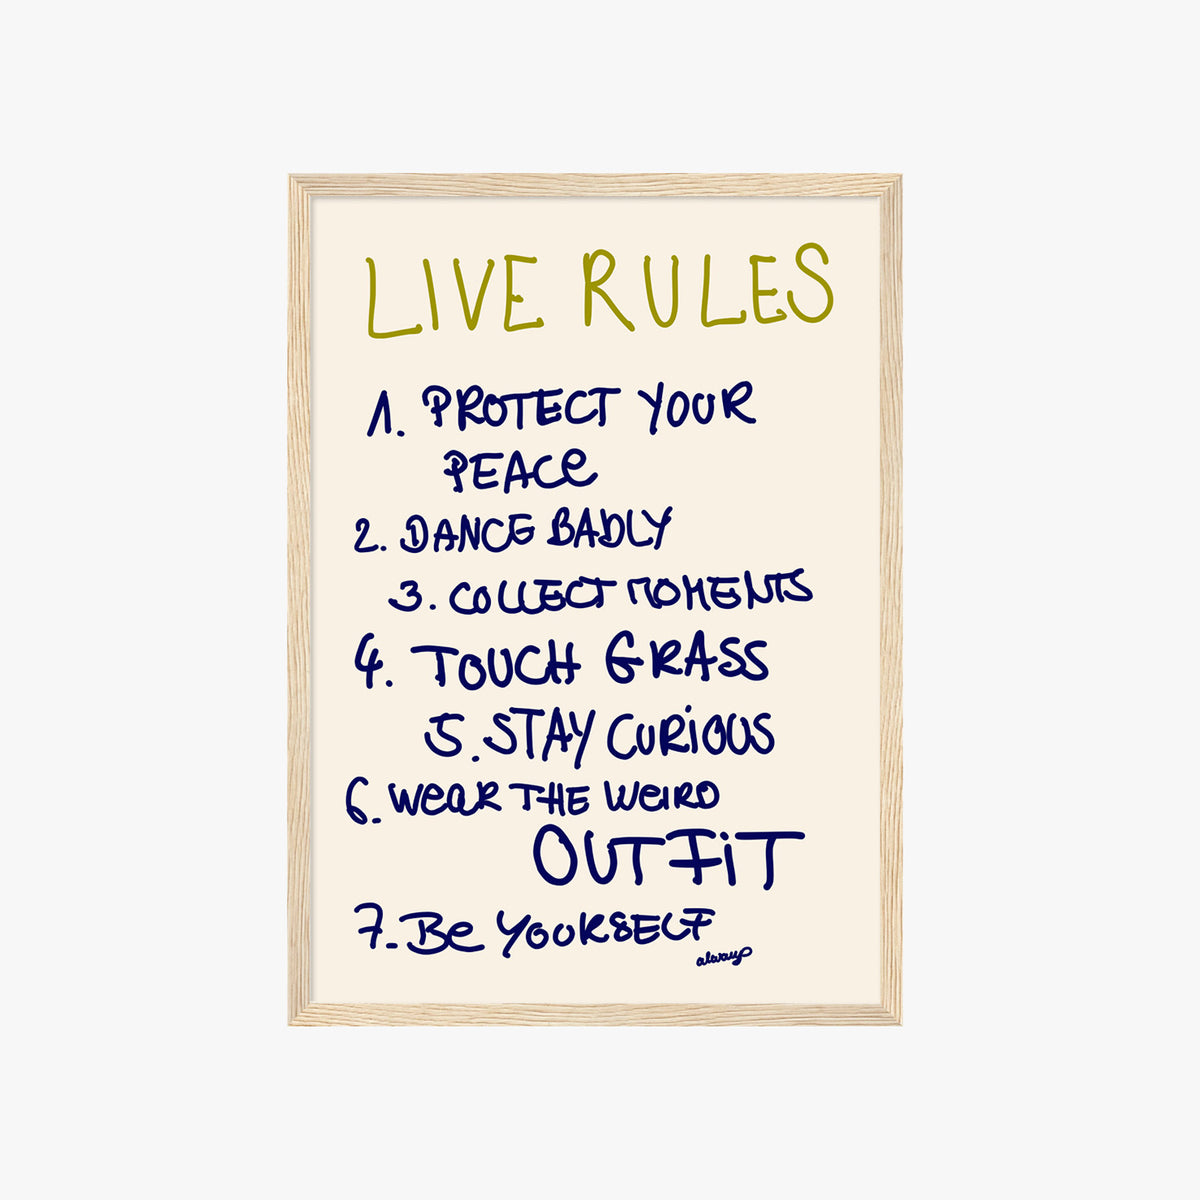 LIVE RULES
1. PROTECT YOUR
PEACe
2. DANCE BADLY
3. COLLECT MOMENTS
4. TOUCH GRASS
5. STAY CURiOUS
6. WeaR THE WeiRD
OUTFiT
7. Be YOURSELF
always